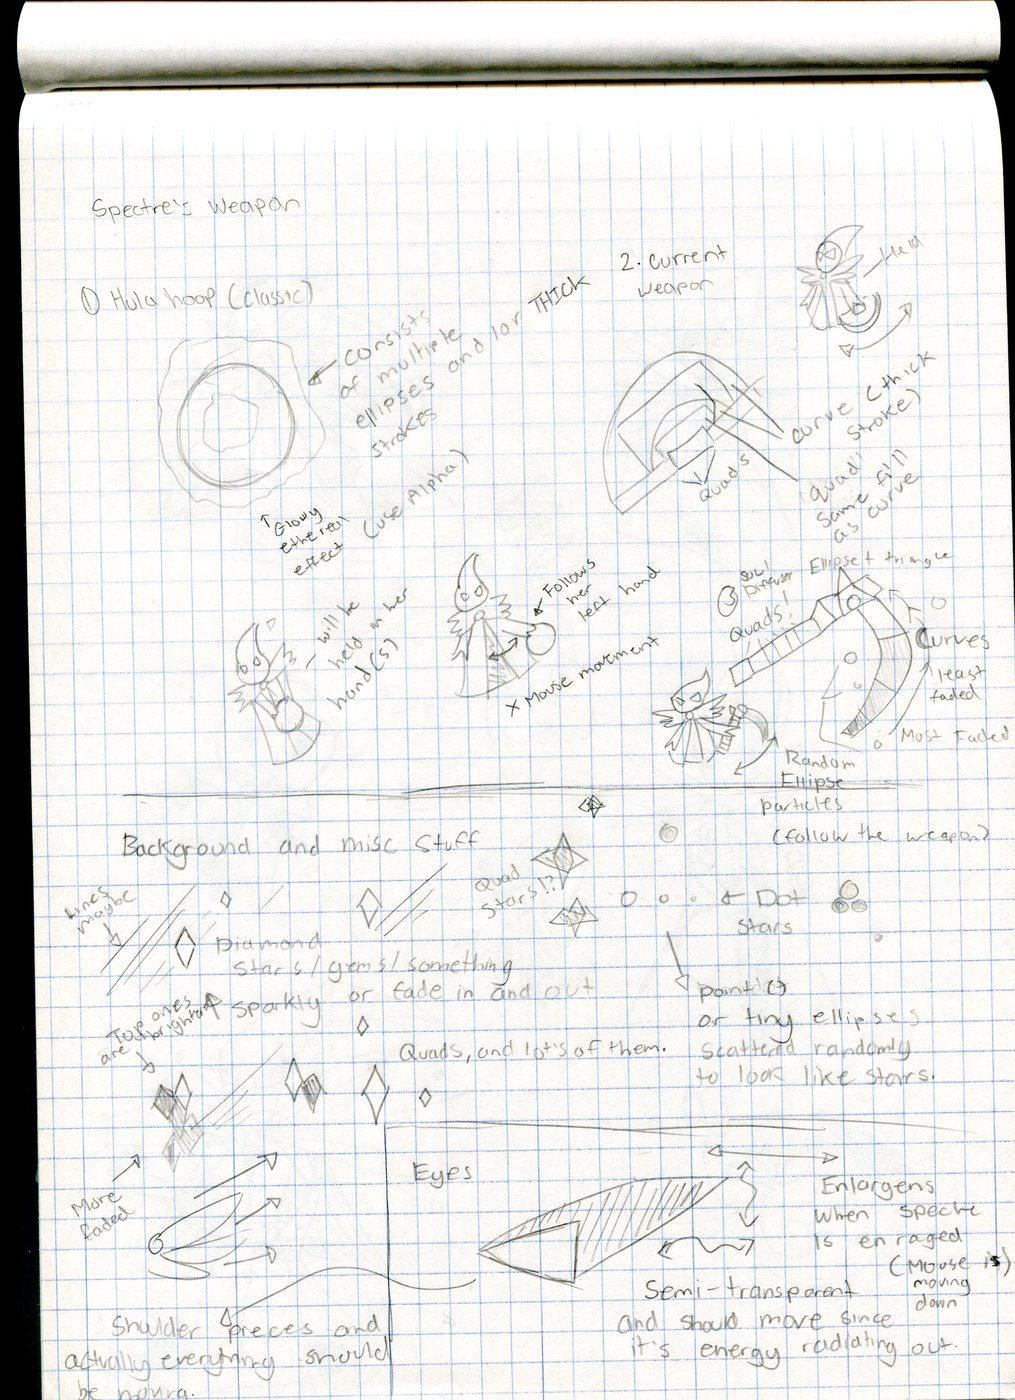 Spectre's Weapon
① Hula hoop (classic)
consists
of multiple
ellipses and / or THICK
strokes
(use Alpha)
↑ Glowy
ethereal
effect
2. current
weapon
Held
curve (thick
stroke)
Quads
quad:
same fill
as curve
will be
held in her
hand(s)
Follows
her
left hand
X Mouse movement
③ Soul
Quads!
Ellipse + triangle
Curves
least
faded
Most Faded
Random
Ellipse
particles
(follow the weapon)
Background and misc stuff
Lines
maybe
Quad
stars!?
Dot
stars
Diamond
stars/gems/something
sparkly or fade in and out
Top ones
are brighter
point()
or tiny ellipses
scattered randomly
to look like stars.
Quads, and lot's of them.
More
faded
Shoulder pieces and
actually everything should
be moving.
Eyes
Enlargens
when Spectre
is enraged
(Mouse is
moving
down)
Semi-transparent
and should move since
it's energy radiating out.